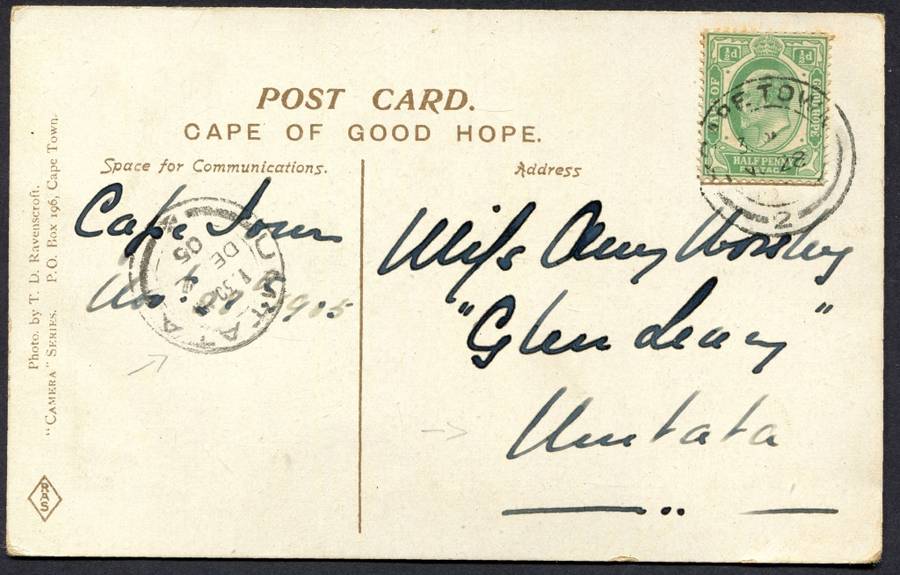 POST CARD.
CAPE OF GOOD HOPE.
Space for Communications.
Address
Cape Town
1905
Miss Amy
"Glen Leary"
Umtata
Photo. by T. D. Ravenscroft.
"CAMERA" SERIES. P.O. Box 196, Cape Town.
RPS
½d ½d
GOOD HOPE
HALF PENNY
POSTAGE
2
UMTATA
DE
05